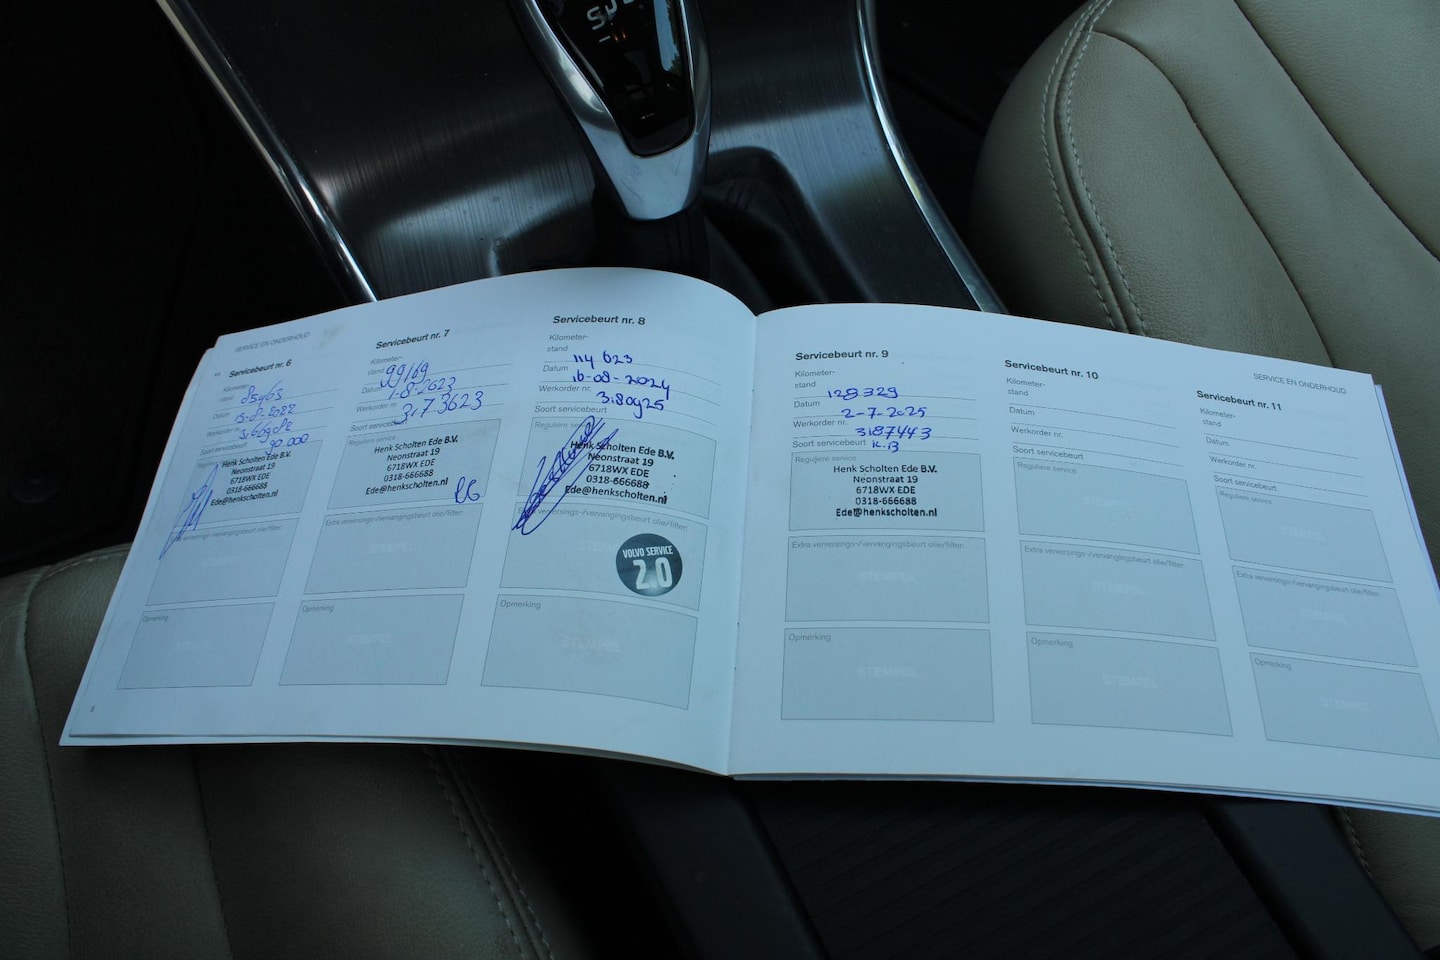 SERVICE EN ONDERHOUD
Servicebeurt nr. 6
Kilometer-
stand 85463
Datum
Werkorder nr.
Soort servicebeurt 90.000
Reguliere service
Henk Scholten Ede B.V.
Neonstraat 19
6718WX EDE
0318-666688
Ede@henkscholten.nl
Extra verversings-/vervangingsbeurt olie/filter:
STEMPEL
Opmerking
STEMPEL
8
Servicebeurt nr. 7
Kilometer-
stand 99169
Datum 1-8-2023
Werkorder nr. 3173623
Soort servicebeurt
Reguliere service
Henk Scholten Ede B.V.
Neonstraat 19
6718WX EDE
0318-666688
Ede@henkscholten.nl
Extra verversings-/vervangingsbeurt olie/filter:
STEMPEL
Opmerking
STEMPEL
Servicebeurt nr. 8
Kilometer-
stand 114 623
Datum 16-08-2024
Werkorder nr. 3180925
Soort servicebeurt
Reguliere service
Henk Scholten Ede B.V.
Neonstraat 19
6718WX EDE
0318-666688
Ede@henkscholten.nl
Extra verversings-/vervangingsbeurt olie/filter:
STEMPEL
VOLVO SERVICE
2.0
Opmerking
STEMPEL
Servicebeurt nr. 9
Kilometer-
stand 128329
Datum 2-7-2025
Werkorder nr. 3187443
Soort servicebeurt K.B
Reguliere service
Henk Scholten Ede B.V.
Neonstraat 19
6718WX EDE
0318-666688
Ede@henkscholten.nl
Extra verversings-/vervangingsbeurt olie/filter:
STEMPEL
Opmerking
STEMPEL
Servicebeurt nr. 10
Kilometer-
stand
Datum
Werkorder nr.
Soort servicebeurt
Reguliere service
STEMPEL
Extra verversings-/vervangingsbeurt olie/filter:
STEMPEL
Opmerking
STEMPEL
SERVICE EN ONDERHOUD
Servicebeurt nr. 11
Kilometer-
stand
Datum
Werkorder nr.
Soort servicebeurt
Reguliere service
STEMPEL
Extra verversings-/vervangingsbeurt olie/filter:
STEMPEL
Opmerking
STEMPEL